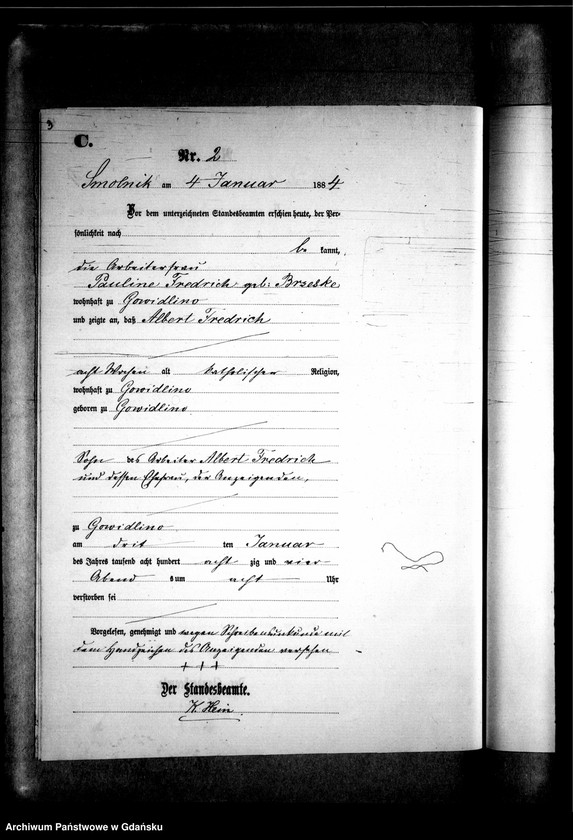 C.
Nr. 2
Smolnik am 4 Januar 1884
Vor dem unterzeichneten Standesbeamten erschien heute, der Per-
sönlichkeit nach
be kannt,
die Arbeiterfrau
Pauline Fredrich geb: Brzeske
wohnhaft zu Gowidlino
und zeigte an, daß Albert Fredrich
acht Wochen alt katholischer Religion,
wohnhaft zu Gowidlino
geboren zu Gowidlino
Sohn des Arbeiter Albert Fredrich
und dessen Ehefrau, der Anzeigenden,
zu Gowidlino
am drit ten Januar
des Jahres tausend acht hundert acht zig und vier
Abend s um acht Uhr
verstorben sei
Vorgelesen, genehmigt und wegen Schreibensunkunde mit
dem Handzeichen des Anzeigenden versehen
+ + +
Der Standesbeamte.
K. Hein
Archiwum Państwowe w Gdańsku